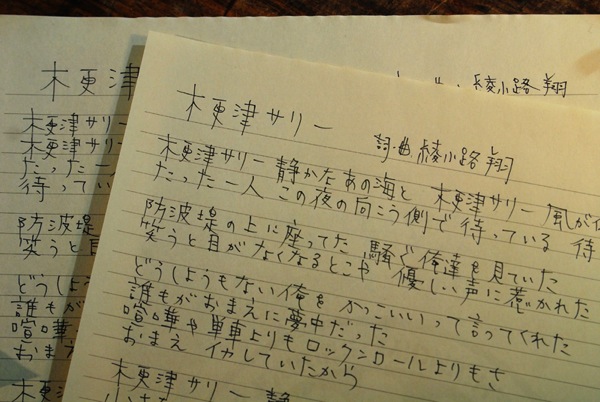 木更津
綾小路 翔
木更津サリー
木更津サリー
たった一人
待ってい
防波堤
笑うと目
どうしよう
誰もが
喧嘩
おまえ
木更津サリー
詞・曲 綾小路 翔
木更津サリー 静かなあの海と 木更津サリー 風が
たった一人 この夜の向こう側で 待っている 待
防波堤の上に座ってた 騒ぐ俺達を見ていた
笑うと目がなくなるとこや 優しい声に惹かれた
どうしようもない俺を かっこいいって言ってくれた
誰もがおまえに夢中だった
喧嘩や単車よりもロックンロールよりもさ
おまえ イカしていたから
木更津サリー 静